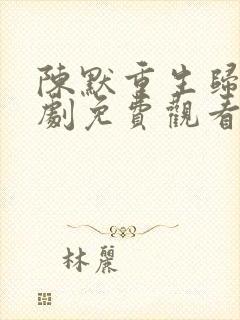 陳默重生歸
劇免費觀看
林麗